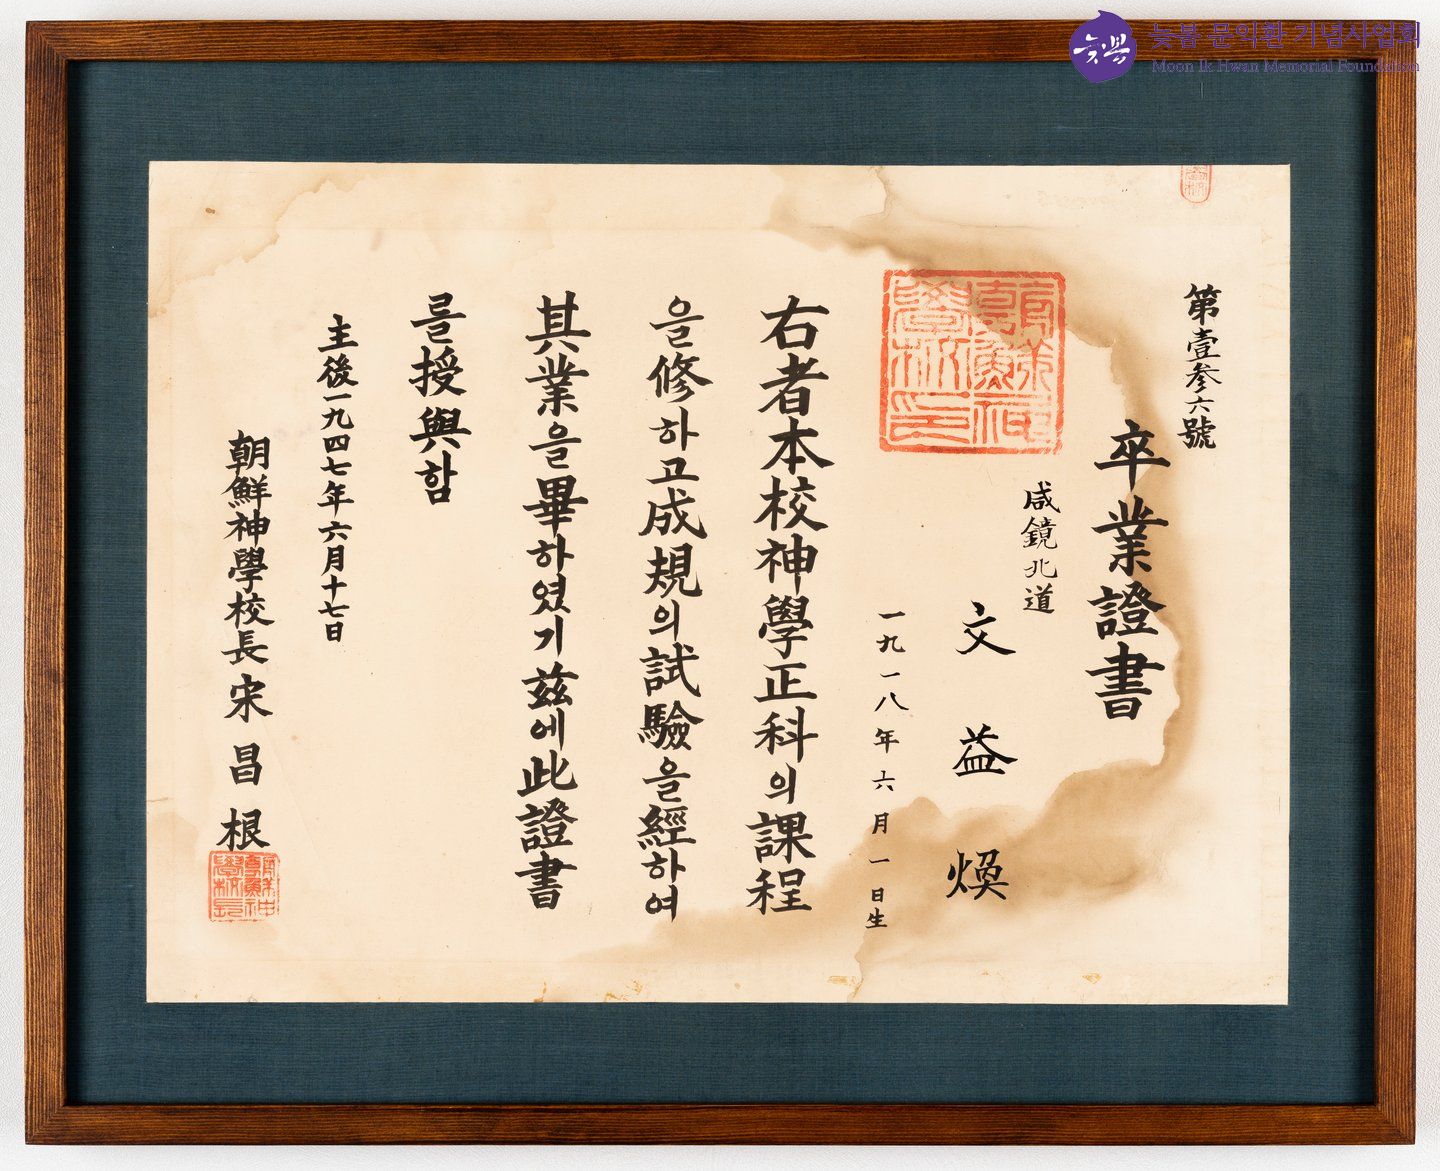 늦봄 문익환 기념사업회
Moon Ik Hwan Memorial Foundation
늦봄
第壹參六號
卒業證書
咸鏡北道
文益煥
一九一八年六月一日生
右者本校神學正科의課程
을修하고成規의試驗을經하여
其業을畢하였기玆에此證書
를授與함
主後一九四七年六月十七日
朝鮮神學校長宋昌根
朝鮮神學校印
朝鮮神學校長